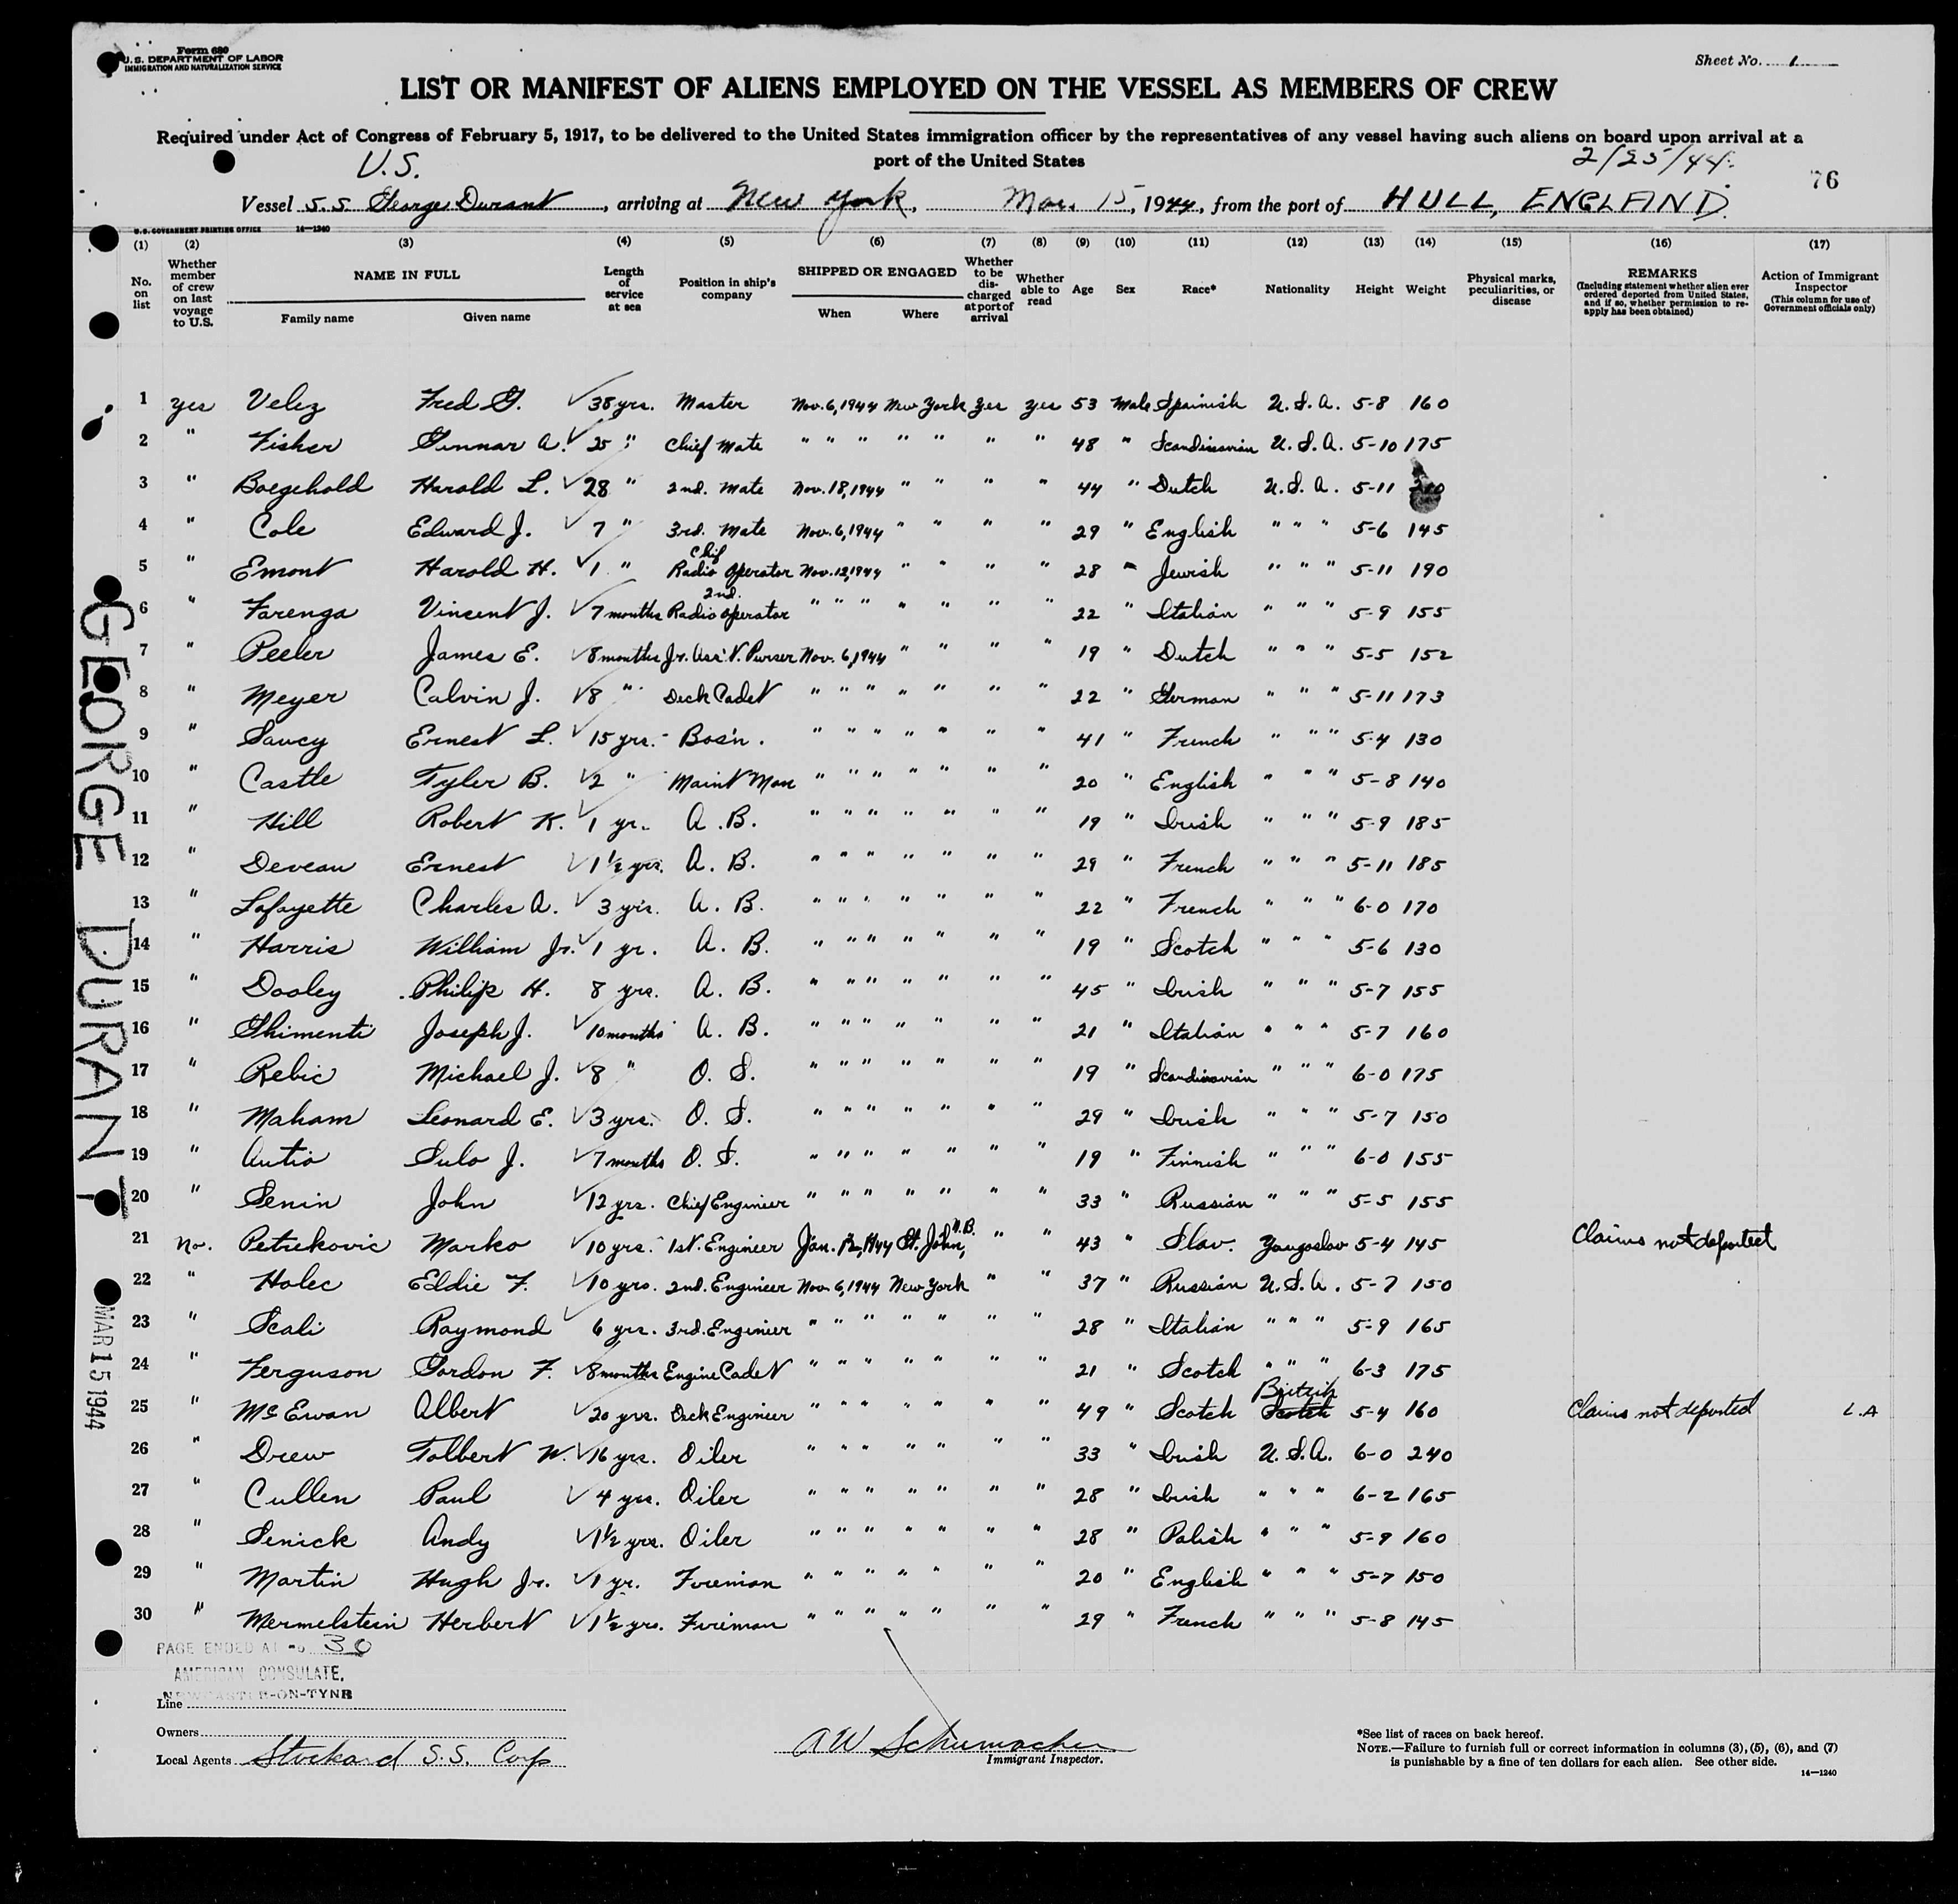 Form 680
U. S. DEPARTMENT OF LABOR
IMMIGRATION AND NATURALIZATION SERVICE
Sheet No. 1
LIST OR MANIFEST OF ALIENS EMPLOYED ON THE VESSEL AS MEMBERS OF CREW
Required under Act of Congress of February 5, 1917, to be delivered to the United States immigration officer by the representatives of any vessel having such aliens on board upon arrival at a
port of the United States
U.S. 2/25/44. 76
Vessel S.S. George Durant, arriving at New York, Mar. 15, 1944, from the port of HULL, ENGLAND.
U.S. GOVERNMENT PRINTING OFFICE 14—1240
(1) (2) (3) (4) (5) (6) (7) (8) (9) (10) (11) (12) (13) (14) (15) (16) (17)
No. on list Whether member of crew on last voyage to U.S. NAME IN FULL Family name Given name Length of service at sea Position in ship's company SHIPPED OR ENGAGED When Where Whether to be discharged at port of arrival Whether able to read Age Sex Race* Nationality Height Weight Physical marks, peculiarities, or disease REMARKS (Including statement whether alien ever ordered deported from United States, and if so, whether permission to re-apply has been obtained) Action of Immigrant Inspector (This column for use of Government officials only)
1 yes Velez Fred G. 38 yrs. Master Nov. 6, 1944 New York Yes yes 53 Male Spainish U.S.A. 5-8 160
2 " Fisher Gunnar A. 25 " Chief Mate " " " " " " " 48 " Scandinavian U.S.A. 5-10 175
3 " Boegehold Harold L. 28 " 2nd. Mate Nov. 18, 1944 " " " " 44 " Dutch U.S.A. 5-11
4 " Cole Edward J. 7 " 3rd. Mate Nov. 6, 1944 " " " " 29 " English " " " 5-6 145
5 " Emont Harold H. 1 " Chif Radio Operator Nov. 12, 1944 " " " " 28 " Jewish " " " 5-11 190
6 " Farenga Vincent J. 7 months 2nd. Radio Operator " " " " " " " 22 " Italian " " " 5-9 155
7 " Peeler James E. 8 months Jr. Ass't. Purser Nov. 6, 1944 " " " " 19 " Dutch " " " 5-5 152
8 " Meyer Calvin J. 8 " Deck Cadet " " " " " " " 22 " German " " " 5-11 173
9 " Saucy Ernest L. 15 yrs. Bos'n. " " " " " " " 41 " French " " " 5-4 130
10 " Castle Tyler B. 2 " Maint Man " " " " " " " 20 " English " " " 5-8 140
11 " Hill Robert K. 1 yr. A.B. " " " " " " " 19 " Irish " " " 5-9 185
12 " Deveau Ernest 1½ yrs. A.B. " " " " " " " 29 " French " " " 5-11 185
13 " Lafayette Charles A. 3 yrs. A.B. " " " " " " " 22 " French " " " 6-0 170
14 " Harris William Jr. 1 yr. A.B. " " " " " " " 19 " Scotch " " " 5-6 130
15 " Dooley Philip H. 8 yrs. A.B. " " " " " " " 45 " Irish " " " 5-7 155
16 " Ghimenti Joseph J. 10 months A.B. " " " " " " " 21 " Italian " " " 5-7 160
17 " Rebic Michael J. 8 " O.S. " " " " " " " 19 " Scandinavian " " " 6-0 175
18 " Maham Leonard E. 3 yrs. O.S. " " " " " " " 29 " Irish " " " 5-7 150
19 " Autio Sulo J. 7 months O.S. " " " " " " " 19 " Finnish " " " 6-0 155
20 " Senin John 12 yrs. Chief Engineer " " " " " " " 33 " Russian " " " 5-5 155
21 No. Petrekovic Marko 10 yrs. 1st. Engineer Jan. 12, 1944 St. John, N.B. " " 43 " Slav. Yougoslav 5-4 145 Claims not deported
22 " Holec Eddie F. 10 yrs. 2nd. Engineer Nov. 6, 1944 New York " " 37 " Russian U.S.A. 5-7 150
23 " Scali Raymond 6 yrs. 3rd. Engineer " " " " " " " 28 " Italian " " " 5-9 165
24 " Ferguson Gordon F. 8 months Engine Cadet " " " " " " " 21 " Scotch " " " 6-3 175
25 " McEwan Albert 20 yrs. Deck Engineer " " " " " " " 49 " Scotch Scotch British 5-4 160 Claims not deported L.A
26 " Drew Tolbert W. 16 yrs. Oiler " " " " " " " 33 " Irish U.S.A. 6-0 240
27 " Cullen Paul 4 yrs. Oiler " " " " " " " 28 " Irish " " " 6-2 165
28 " Senick Andy 1½ yrs. Oiler " " " " " " " 28 " Polish " " " 5-9 160
29 " Martin Hugh Jr. 1 yr. Fireman " " " " " " " 20 " English " " " 5-7 150
30 " Mermelstein Herbert 1½ yrs. Fireman " " " " " " " 29 " French " " " 5-8 145
GEORGE DURANT
MAR 15 1944
PAGE ENDED AT No. 30
AMERICAN CONSULATE,
NEWCASTLE-ON-TYNE
Line
Owners
Local Agents Stockard S.S. Corp
AW Schumacher
Immigrant Inspector.
*See list of races on back hereof.
NOTE.—Failure to furnish full or correct information in columns (3), (5), (6), and (7)
is punishable by a fine of ten dollars for each alien. See other side.
14—1240